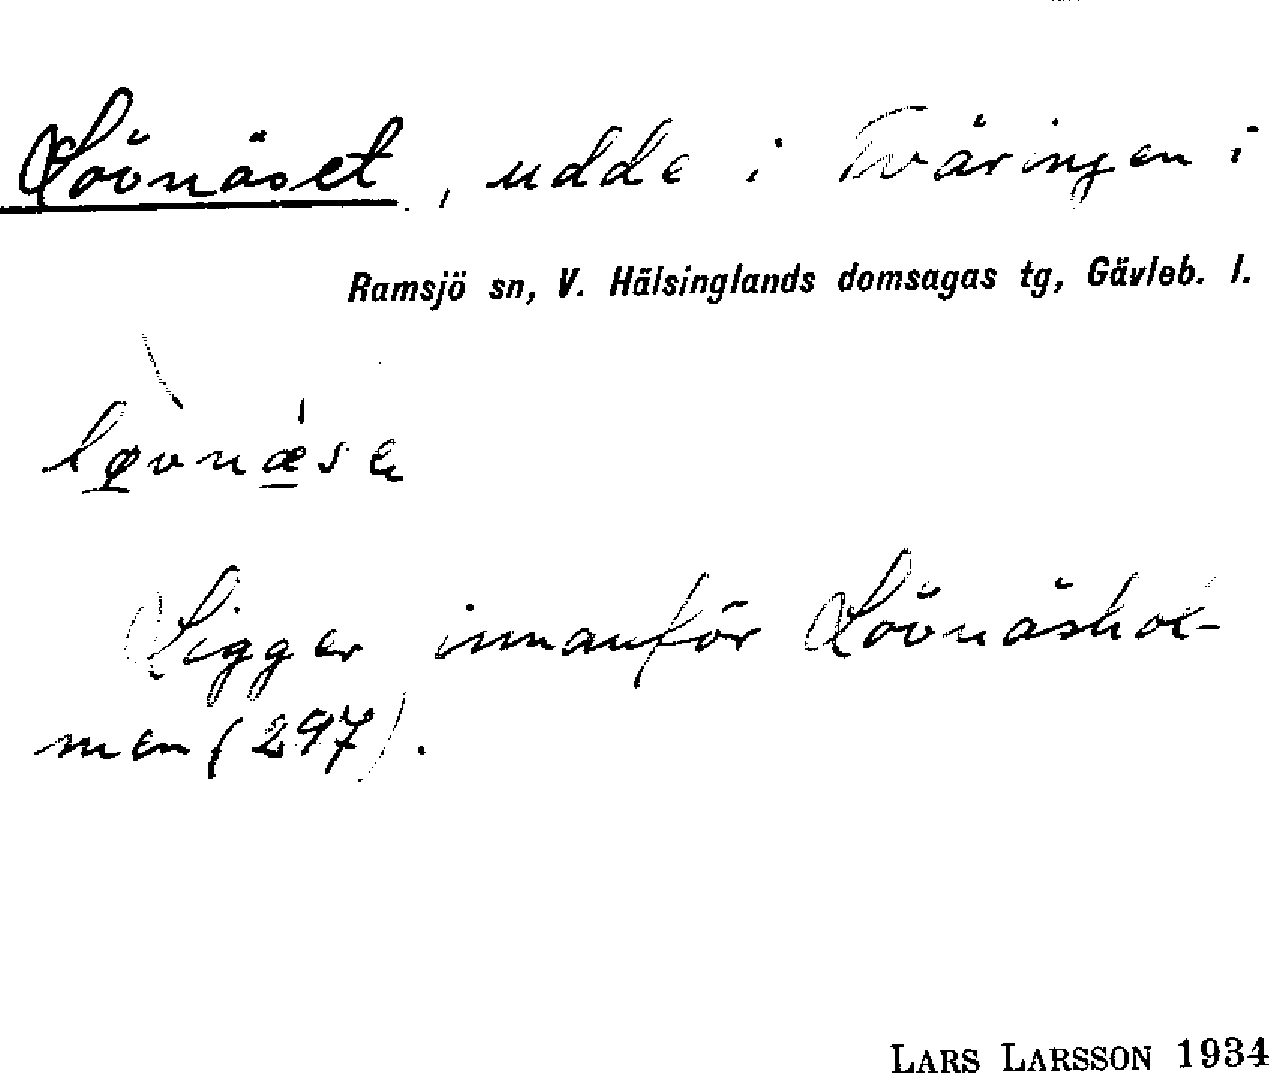 Lövnäset, udde i Tväringen i
Ramsjö sn, V. Hälsinglands domsagas tg, Gävleb. l.
løvnæsɛ
Ligger innanför Lövnäshol-
men (297).
LARS LARSSON 1934